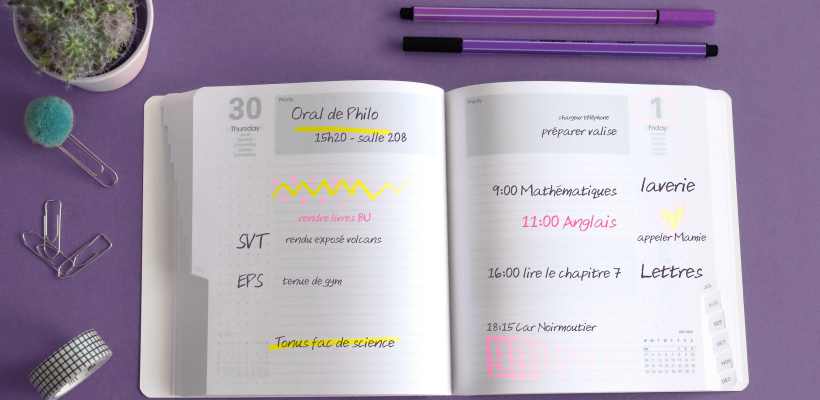 30
Thursday
Priority
Oral de Philo
15h20 - salle 208
rendre livres BU
SVT rendu exposé volcans
EPS tenue de gym
Tonus fac de science
Priority
1
Friday
chargeur téléphone
préparer valise
9:00 Mathématiques
laverie
11:00 Anglais
appeler Mamie
16:00 lire le chapitre 7
Lettres
18:15 Car Noirmoutier
JUL
AUG
SEP
OCT
NOV
DEC